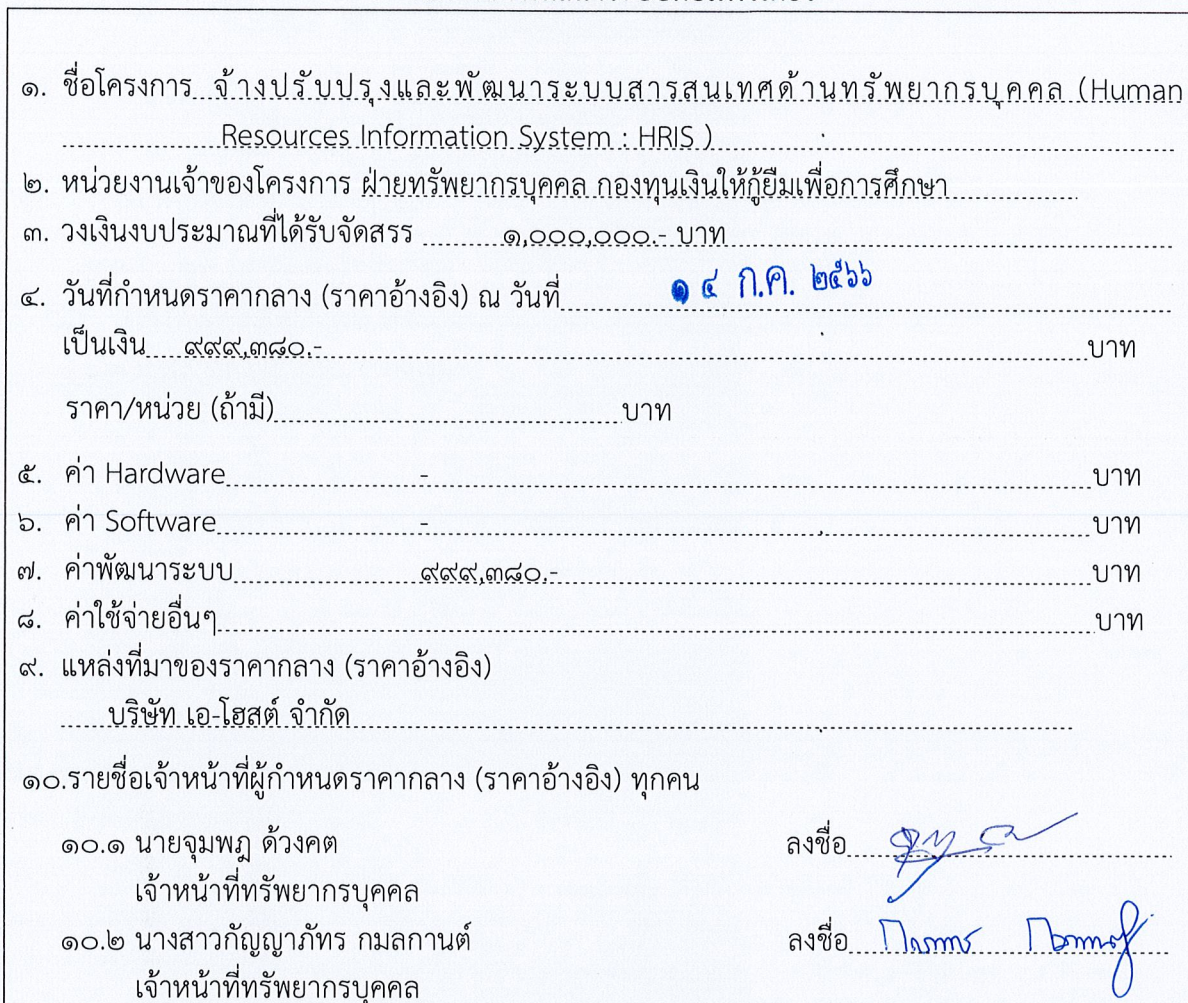 ๑. ชื่อโครงการ จ้างปรับปรุงและพัฒนาระบบสารสนเทศด้านทรัพยากรบุคคล (Human
Resources Information System : HRIS )
๒. หน่วยงานเจ้าของโครงการ ฝ่ายทรัพยากรบุคคล กองทุนเงินให้กู้ยืมเพื่อการศึกษา
๓. วงเงินงบประมาณที่ได้รับจัดสรร ๑,๐๐๐,๐๐๐.- บาท
๔. วันที่กำหนดราคากลาง (ราคาอ้างอิง) ณ วันที่ ๑๔ ก.ค. ๒๕๖๖
เป็นเงิน ๙๙๙,๓๘๐.- บาท
ราคา/หน่วย (ถ้ามี) บาท
๕. ค่า Hardware - บาท
๖. ค่า Software - บาท
๗. ค่าพัฒนาระบบ ๙๙๙,๓๘๐.- บาท
๘. ค่าใช้จ่ายอื่นๆ บาท
๙. แหล่งที่มาของราคากลาง (ราคาอ้างอิง)
บริษัท เอ-โฮสต์ จำกัด
๑๐.รายชื่อเจ้าหน้าที่ผู้กำหนดราคากลาง (ราคาอ้างอิง) ทุกคน
๑๐.๑ นายจุมพฎ ด้วงคต ลงชื่อ
เจ้าหน้าที่ทรัพยากรบุคคล
๑๐.๒ นางสาวกัญญาภัทร กมลกานต์ ลงชื่อ
เจ้าหน้าที่ทรัพยากรบุคคล